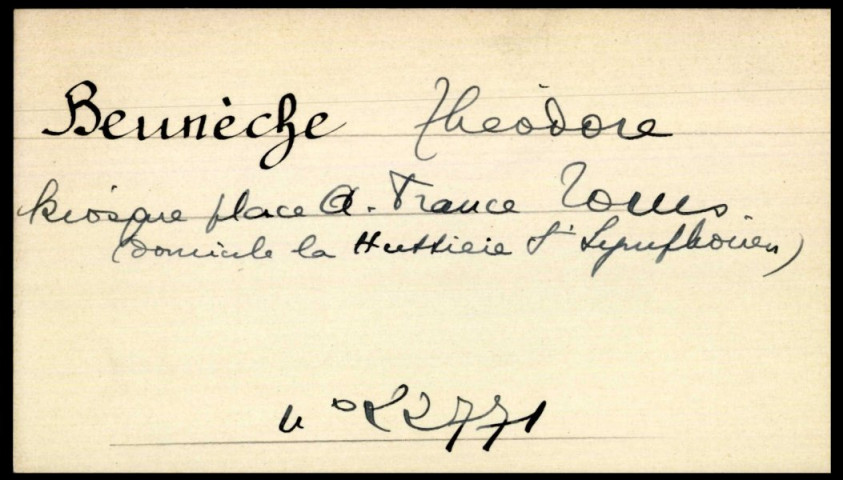 Beunèche Théodore
kiosque place A. France Tours
(domicile la Huttière St Symphorien)
n° 22771